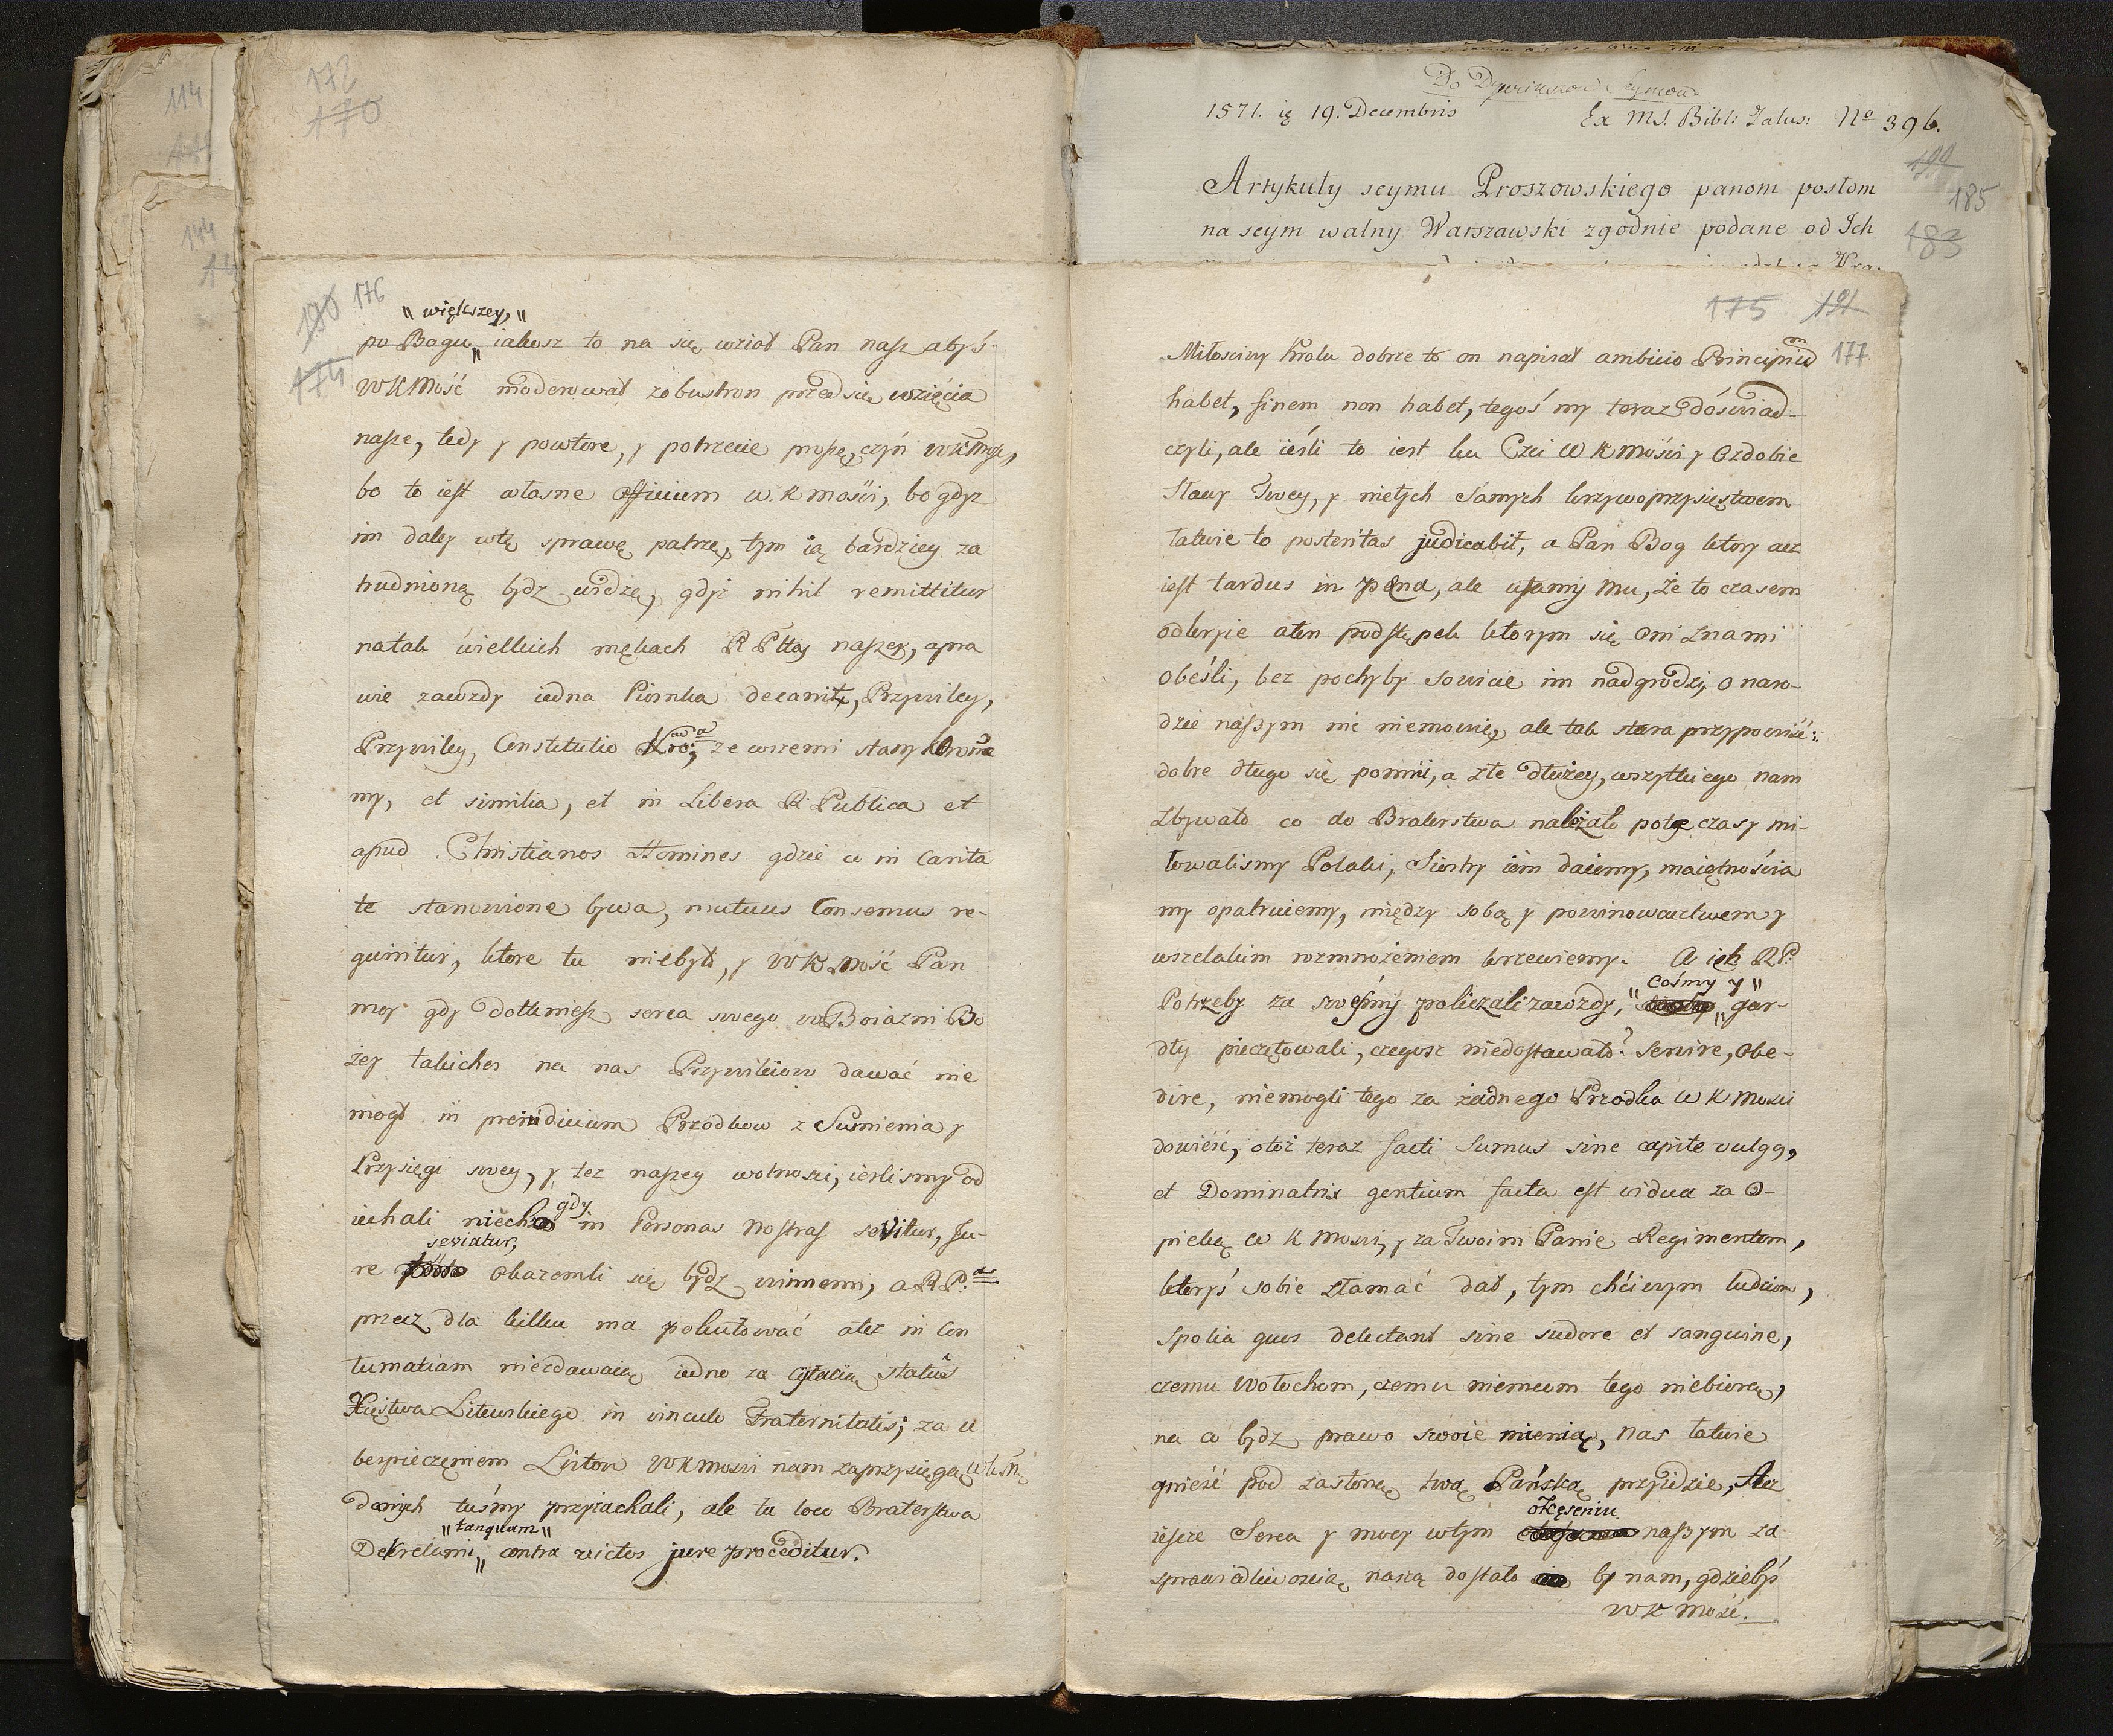 114
144
172
170
176
174
„większey,„
po Bogu„ iakosz to na się wziął Pan nasz abyś
WKMość moderował zobustron przedsię wzięcia
nasze, tedy y powtore, y potrzecie proszę, czyń WKMść,
bo to iest własne officium w. K mości, bo gdyż
im daley wtę sprawę patrzę, tym ią bardziey za
trudnioną bydz widzę, gdyż nihil remittitur
natak wielkich mękach R Pltey naszey, apra
wie zawzdy iedna Piosnka decanit, Przywiley,
Przywiley, Constitutio ze wszemi stany
my, et similia, et in Libera R. Publica et
apud Christianos Homines gdzie co in Carita
te stanowione bywa, mutuus Consensus re-
quiritur, ktore tu niebył, y WKMość Pan
moy gdy dotkniesz serca swego w Boiazni Bo
zey takiches na nas Przywileiow dawać nie
mogł in preiudicium Przodkow z Sumienia y
Przysięgi swey, y tez naszey wolnosci, ieslismy od
iechali niech gdy in Personas nostras sevitur, Ju-
seviatur,
re okazemli się bydz winnemi, a R P.
przecz dla kilku ma pokutować atez in Con
tumatiam niezdawaią iedno za cytacią statûs
Xięstwa Litewskiego in vinculo Fraternitatis; za u
bespieczęniem Listow WKMosci nam zaprzysięgą
danych tuśmy przyiachali, ale tu loco Braterstwa
„tanquam„
Dekretami„ contra victos jure proceditur.
1571. 19. Decembris
Ex MS. Bibl: Zalus: No 396.
Artykuły seymu Proszowskiego panom posłom
na seym walny Warszawski zgodnie podane od Ich
185
183
175
177
Miłościwy Krolu dobrze to on napisał ambicio Principium
habet, finem non habet, tegoś my teraz doświad-
czyli, ale ieśli to iest ku Czci W K mości y Ozdobie
Sławy Twey, y nietych Samych krzywoprzysięstwem
łatwie to posteritas judicabit, a Pan Bog ktory acz
iest tardus in pœna, ale ufamy mu, że to czasem
odkryie aten podstępek ktorym się oni znami
obeśli, bez pochyby sowicie im nadgrodzi, o naro-
dzie naszym nic niemowię, ale tak stara przypowiść:
dobre długo się pomni, a złe dłużey, wszytkiego nam
zbywało co do Braterstwa należało poty czasy mi-
łowalismy Polaki, Siostry iem daiemy, maiętnościa
my opatruiemy, między sobą y powinowactwem y
wszelakim rozmnożeniem krzewiemy. A ich R P.
„cośmy y„
Potrzeby za swesmy policzali zawzdy, gar-
dły pieczętowali, czegosz niedostawało? servire, Obe-
dire, niemogli tego za żadnego Przodka W K Mosci
dowieść, otoż teraz facti Sumus sine capite vulgg,
et Dominatrix gentium facta est vidua za O-
pieką W K Mosci, y za Twoim Panie Regimentem,
ktoryś sobie złamać dał, tym chciwym ludziom,
spolia quos delectant sine sudore et sanguine,
czemu Wołochom, czemu niemcom tego niebiorą,
na co bydz prawo swoie mienią, nas łatwie
gnieść pod zasłoną twą Pańską przyidzie, Acz
otzęseniu
iescze Serca y mocy wtym naszym za
sprawiedliwoscią naszą dostało by nam, gdziebyś
WK Mość.